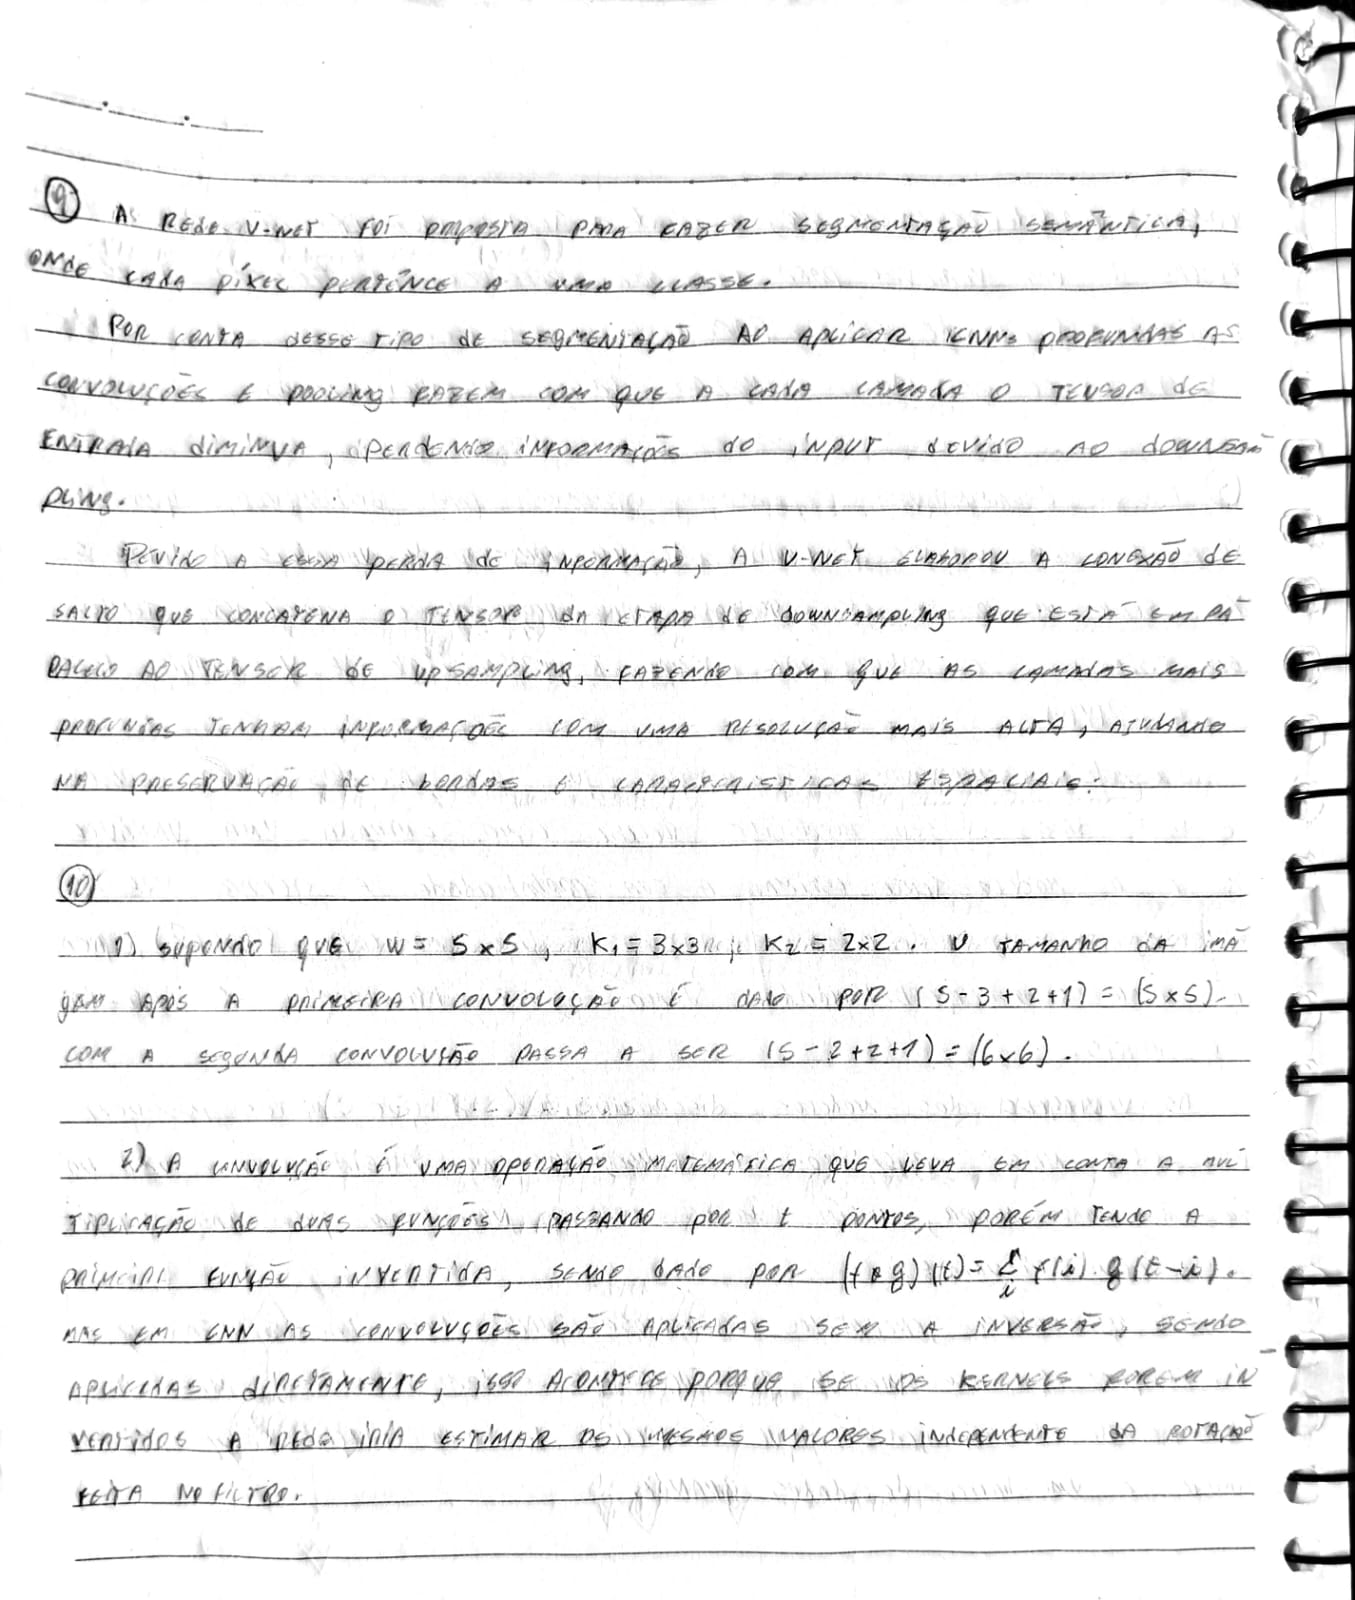 9 A REDE U-NET FOI PROPOSTA PARA FAZER SEGMENTAÇÃO SEMÂNTICA,
ONDE CADA PÍXEL PERTÊNCE A UMA CLASSE.
POR CONTA DESSE TIPO DE SEGMENTAÇÃO AO APLICAR CNNs PROFUNDAS AS
CONVOLUÇÕES E POOLING FAZEM COM QUE A CADA CAMADA O TENSOR DE
ENTRADA DIMINUA, PERDENDO INFORMAÇÕES DO INPUT DEVIDO AO DOWNSAM
PLING.
DEVIDO A ESSA PERDA DE INFORMAÇÃO, A U-NET ELABOROU A CONEXÃO DE
SALTO QUE CONCATENA O TENSOR DA ETAPA DE DOWNSAMPLING QUE ESTÁ EM PA
RALELO AO TENSOR DE UPSAMPLING, FAZENDO COM QUE AS CAMADAS MAIS
PROFUNDAS TENHAM INFORMAÇÕES COM UMA RESOLUÇÃO MAIS ALTA, AJUDANDO
NA PRESERVAÇÃO DE BORDAS E CARACTERISTICAS ESPACIAIS.
10
1) SUPONDO QUE W = 5x5, K1 = 3x3, K2 = 2x2. O TAMANHO DA IMA
GEM APÓS A PRIMEIRA CONVOLUÇÃO É DADO POR (5-3+2+1) = (5x5).
COM A SEGUNDA CONVOLUÇÃO PASSA A SER (5-2+2+1) = (6x6).
2) A CONVOLUÇÃO É UMA OPERAÇÃO MATEMÁTICA QUE LEVA EM CONTA A MUL
TIPLICAÇÃO DE DUAS FUNÇÕES PASSANDO POR t PONTOS, PORÉM TENDO A
PRIMEIRA FUNÇÃO INVERTIDA, SENDO DADO POR (f*g)(t) = Σi f(i) g(t-i).
MAS EM CNN AS CONVOLUÇÕES SÃO APLICADAS SEM A INVERSÃO, SENDO
APLICADAS DIRETAMENTE, ISSO ACONTECE PORQUE SE OS KERNELS FOREM IN
VERTIDOS A REDE IRIA ESTIMAR OS MESMOS VALORES INDEPENDENTE DA ROTAÇÃO
FEITA NO FILTRO.